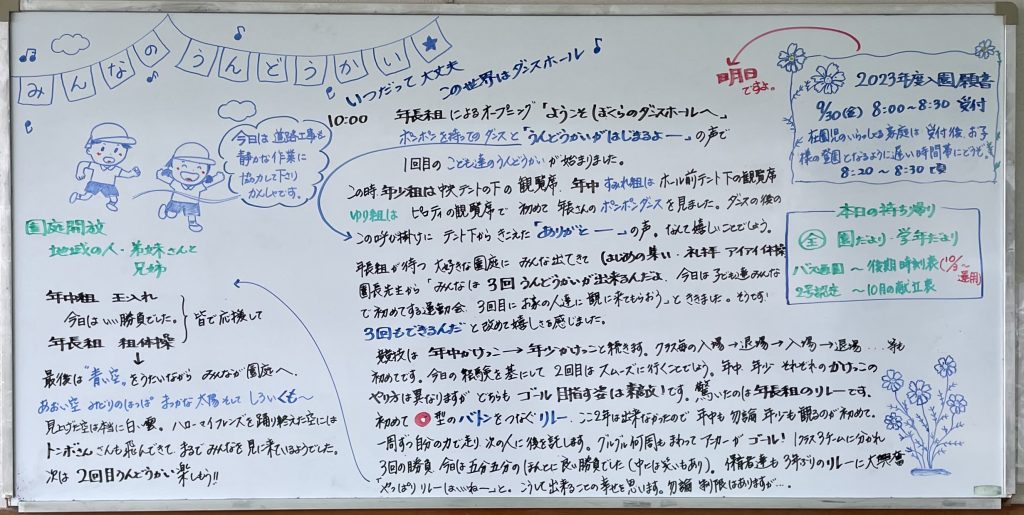 みんなの うんどうかい★
いつだって大丈夫 この世界はダンスホール♪
今日は道路工事も
静かな作業に
協力して下さり
かんしゃです。
園庭開放
地域の人・弟妹さんと
兄姉
10:00 年長組によるオープニング「ようこそ ぼくらのダンスホールへ」
ポンポンを持てのダンスと「うんどうかいがはじまるよー」の声で
1回目のこども達のうんどうかいが始まりました。
この時 年少組は中央テントの下の観覧席、年中すみれ組はホール前テント下の観覧席
ゆり組は ピロティの観覧席で 初めて 年長さんのポンポンダンスを見ました。ダンスの後の
この呼び掛けに テント下から きこえた「ありがとー」の声。なんて嬉しいことでしょう。
年長が待つ 大好きな園庭に みんな出てきて はじめの集い・礼拝 アイアイ体操
園長先生から「みんなは 3回 うんどうかいが出来るんだよ、今日は子ども達みんな
で初めてする運動会、3回目にお家の人達に観に来てもらおう」ときききました。そうです!
3回もできるんだと改めて嬉しさを感じました。
競技は 年中かけっこ→年少かけっこと続きます。クラス毎の入場→退場→入場→退場....等も
初めてです。今日の経験を基にして 2回目はスムーズに行くことでしょう。年中、年少 それぞれのかけっこの
やり方は異なりますが どちらも ゴール目指す姿は素敵です。驚いたのは年長のリレーです。
初めて 型のバトンをつなぐリレー、ここ2年は出来なかったので 年中も勿論 年少も観るのが初めて。
一周ずつ自分の力で走り 次の人に後を託します。グルグル何周もまわってアンカーがゴール! 1クラス3チームに分かれ
3回の勝負 今日は五分五分のほんとに良い勝負でした(中には笑いもあり)。保育者達も3年ぶりのリレーに大興奮
「やっぱりリレーはいいねー」と。こうして出来ることの幸せを思います。勿論 制限はありますが....
年中組 玉入れ
今日はいい勝負でした。
年長組 組体操
皆で応援して
↓
最後は“青い空”をうたいながら みんなが園庭へ、
あおい空 みどりのはっぱ まっかな太陽 そして しろいくも〜
見上げた空は本当に白い雲。ハローマイフレンズを踊り終えた空には
トンボさんも飛んできて、まるでみんなを見に来ているようでした。
次は 2回目うんどうかい 楽しもう!!
明日
ですよ。
2023年度入園願書
9/30(金) 8:00〜8:30 受付
在園児のいらっしゃる家庭は 受付後、お子
様の登園となるように遅い時間帯にどうぞ。
8:20〜8:30頃
本日の持ち帰り
全 園だより・学年だより
バス通園 〜後期時刻表(10/3〜運用)
2号認定 〜10月の献立表